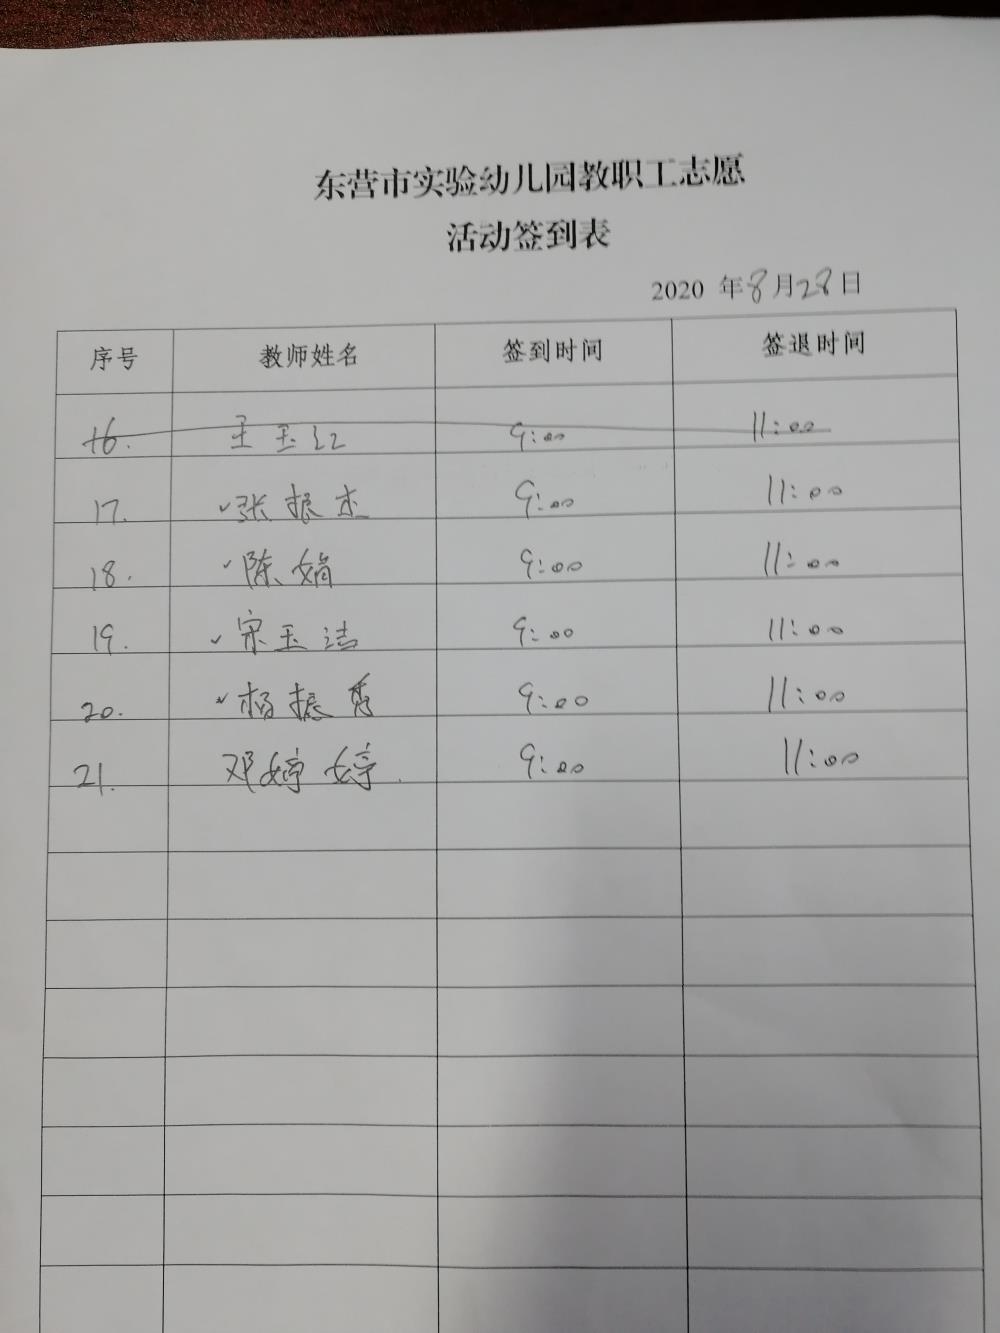 东营市实验幼儿园教职工志愿
活动签到表
2020 年8月28日
序号 教师姓名 签到时间 签退时间
16. 王玉红 9:00 11:00
17. ✓张振杰 9:00 11:00
18. ✓陈娟 9:00 11:00
19. ✓宋玉洁 9:00 11:00
20. ✓杨振秀 9:00 11:00
21. 邓婷婷 9:00 11:00